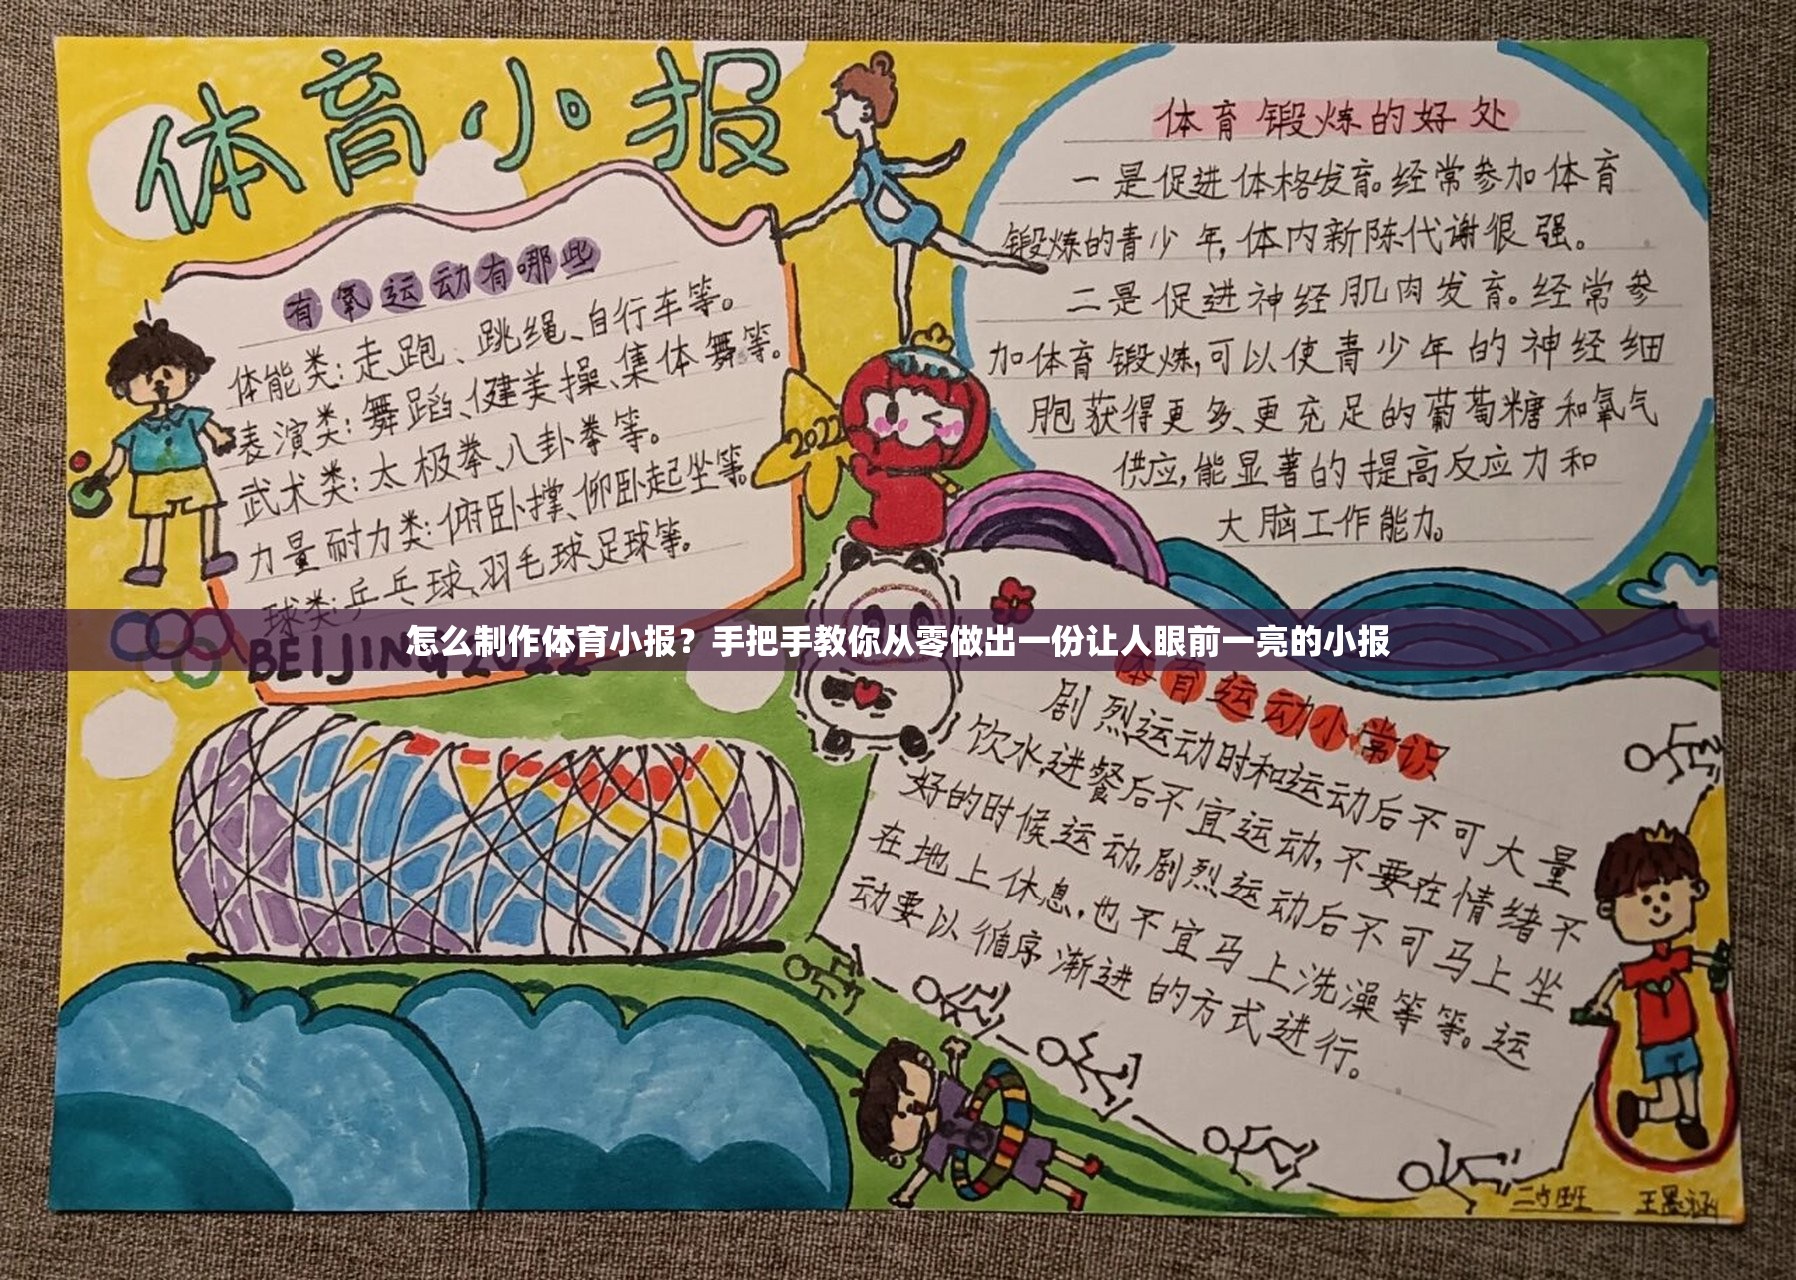 体育小报
有氧运动有哪些
体能类：走跑、跳绳、自行车等。
表演类：舞蹈、健美操、集体舞等。
武术类：太极拳、八卦拳等。
力量耐力类：俯卧撑、仰卧起坐等。
球类：乒乓球、羽毛球、足球等。
BEIJING 2022
2022
体育锻炼的好处
一是促进体格发育。经常参加体育
锻炼的青少年，体内新陈代谢很强。
二是促进神经肌肉发育。经常参
加体育锻炼，可以使青少年的神经细
胞获得更多、更充足的葡萄糖和氧气
供应，能显著的提高反应力和
大脑工作能力。
怎么制作体育小报？手把手教你从零做出一份让人眼前一亮的小报
体育运动小常识
剧烈运动时和运动后不可大量
饮水，进餐后不宜运动，不要在情绪不
好的时候运动，剧烈运动后不可马上坐
在地上休息，也不宜马上洗澡等等。运
动要以循序渐进的方式进行。